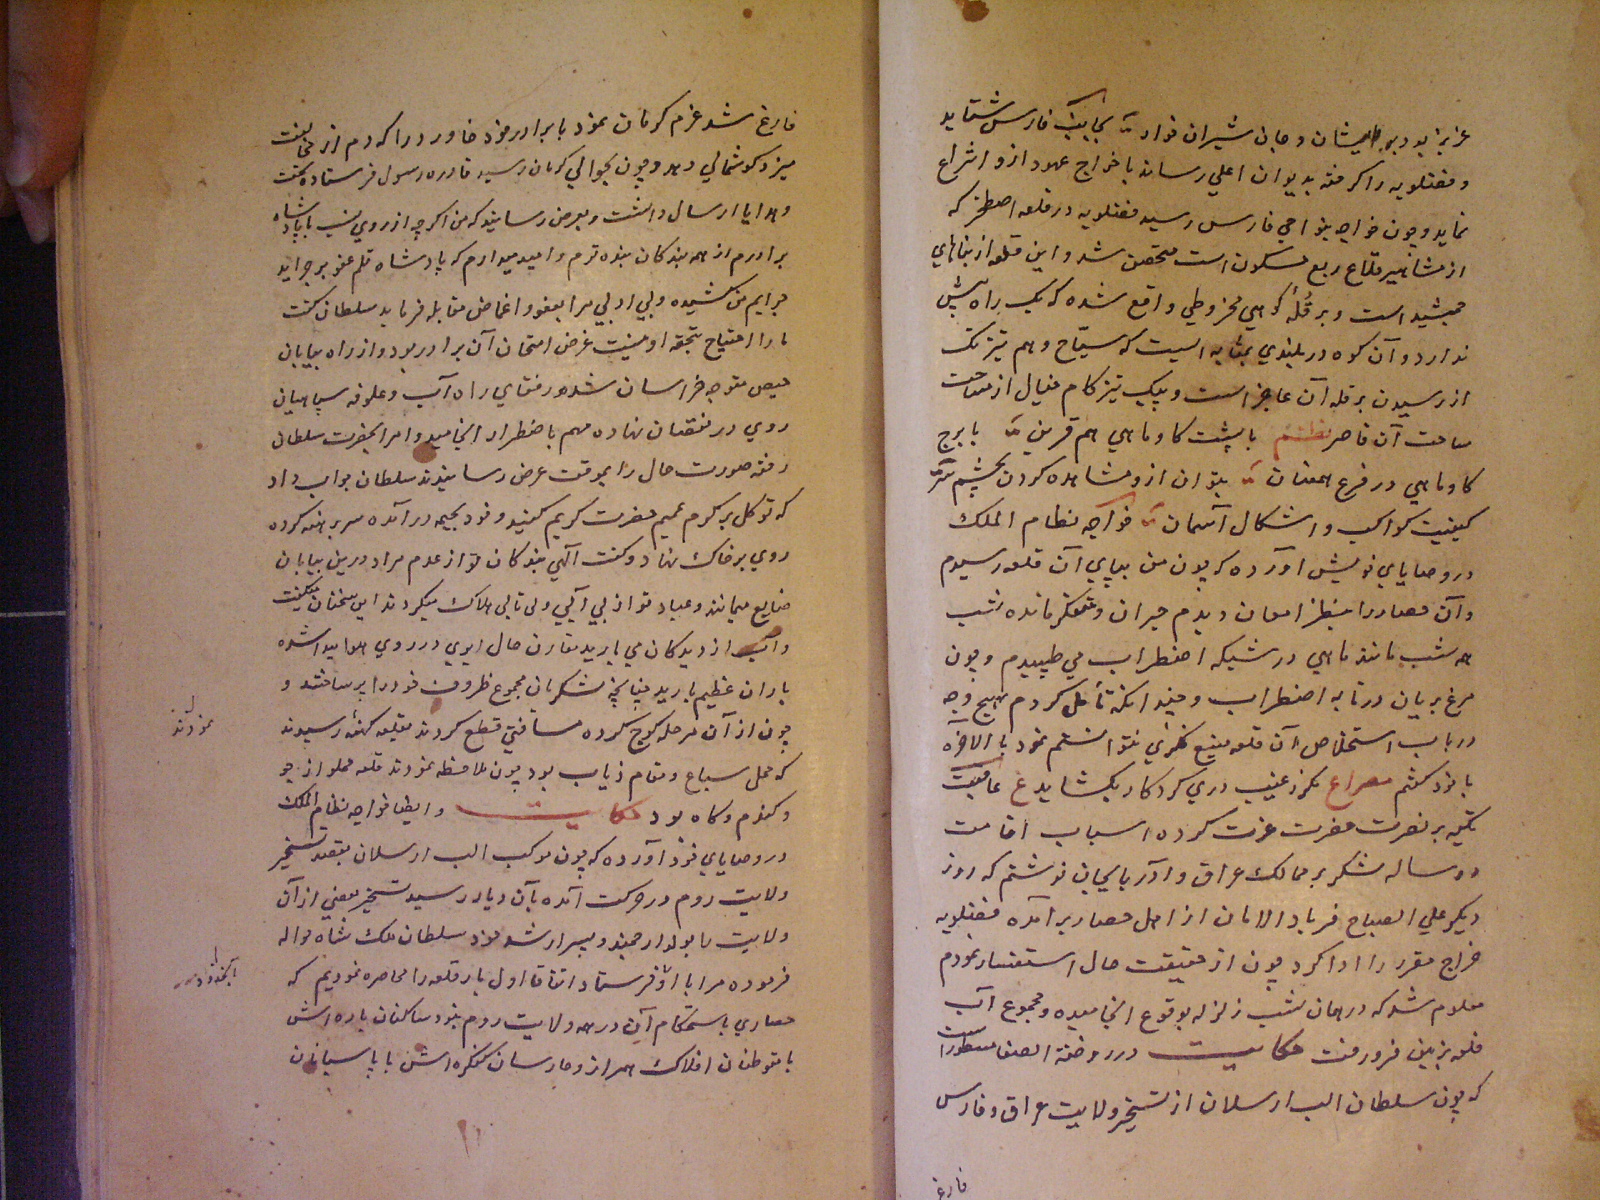 عزیز بود بر ایشان و جان شیران خوار بجانب فارس شتابد
و فضلویه را گرفته بدیوان اعلی رساند یا خراج عهود ازو انتزاع
نماید و چون خواجه بنواحی فارس رسید فضلویه در قلعه اصطخر که
از مشاهیر قلاع ربع مسکون است متحصن شد و این قلعه از بناهای
جمشید است و بر قُلهٔ کوهی مخروطی واقع شده که یک راه بیش
ندارد و آن کوه در بلندی بمثابه ایست که سیّاح وهم تیز تک
از رسیدن بر قله آن عاجز است و پیک تیز کام خیال از مساحت
ساحت آن قاصر نظم با پشت کاو ماهی هم قرین با برج
کاو ماهی در فرع همعنان بتوان ازو مشاهده کردن بچشم سر
کیفیت کواکب و اشکال آسمان خواجه نظام الملک
در وصایای خویش آورده که چون من بپای آن قلعه رسیدم
و آن حصار را بنظر امعان دیدم حیران و متفکر مانده شب
همه شب مانند ماهی در شبکه اضطراب می طپیدم و چون
مرغ بریان در تابه اضطراب و چندانکه تأمل کردم بهیچ وجه
در باب استخلاص آن قلعه منیع فکری نتوانستم نمود بالاخره
با خود گفتم مصراع مگر ز غیب دری کردکار بگشاید ع عاقبت
تکیه بر نصرت حضرت عزت کرده اسباب اقامت
دو ساله لشکر بر ممالک عراق و آذربایجان نوشتم که روز
دیگر علی الصباح فریاد الامان از اهل حصار برآمده فضلویه
خراج مقرر را ادا کرد چون از حقیقت حال استفسار نمودم
معلوم شد که در همان شب زلزله بوقوع انجامیده و مجموع آب
قلعه بزمین فرو رفت حکایت در روضة الصفا مسطور است
که چون سلطان الب ارسلان از تسخیر ولایت عراق و فارس
فارغ
فارغ شد عزم کرمان نمود با برادر خود قاورد را که دم از مخالفت
میزد گوشمالی دهد و چون بحوالی کرمان رسید قاورد رسول فرستاده تحف
و هدایا ارسال داشت و بعرض رسانید که من اگر چه از روی نسب با پادشاه
برادرم از همه بندکان بنده ترم و امید میدارم که پادشاه قلم عفو بر جراید
جرایم من کشیده و بی ادبی مرا بعفو و اغماض مقابله فرماید سلطان گفت
ما را احتیاج بتحفه او نیست غرض امتحان آن برادر بود و از راه بیابان
حیص متوجه خراسان شده در اثنای راه آب و علوفه سپاهیان
روی در نقصان نهاده مهم باضطرار انجامید و امرا بحضرت سلطان
رفته صورت حال را بموقف عرض رسانیدند سلطان جواب داد
که توکل بر کرم عمیم حضرت کریم کنید و خود بخیمه درآمده سر برهنه کرده
روی بر خاک نهاد و گفت آلهی بندکان تو از عدم مراد درین بیابان
ضایع میمانند و عباد تو از بی آبی و بی تابی هلاک میکردند این سخنان میگفت
و آب از دیدکان می بارید مقارن حال ابری در روی هوا پیدا شده
باران عظیم بارید چنانچه لشکریان مجموع ظروف خود را پر ساختند و
چون از آن مرحله کوچ کرده مسافتی قطع کردند بقلعه کهنهٔ رسیدند
که محل سباع و مقام ذیاب بود چون ملاحظه نمودند قلعه مملو از جو
و کندم و کاه بود حکایت و ایضا خواجه نظام الملک
در وصایای خود آورده که چون موکب الب ارسلان بقصد تسخیر
ولایت روم در حرکت آمده بآن دیار رسید تسخیر بعضی از آن
ولایت بسلطان ملک شاه حواله
فرموده مرا با او فرستاد اتفاقا اول بار قلعه را محاصره نمودیم که
حصاری باستحکام آن در همه ولایت روم نبود ساکنان باره اش
با متوطنان افلاک همراز و حارسان کنکره اش با پاسبانان
نمودند